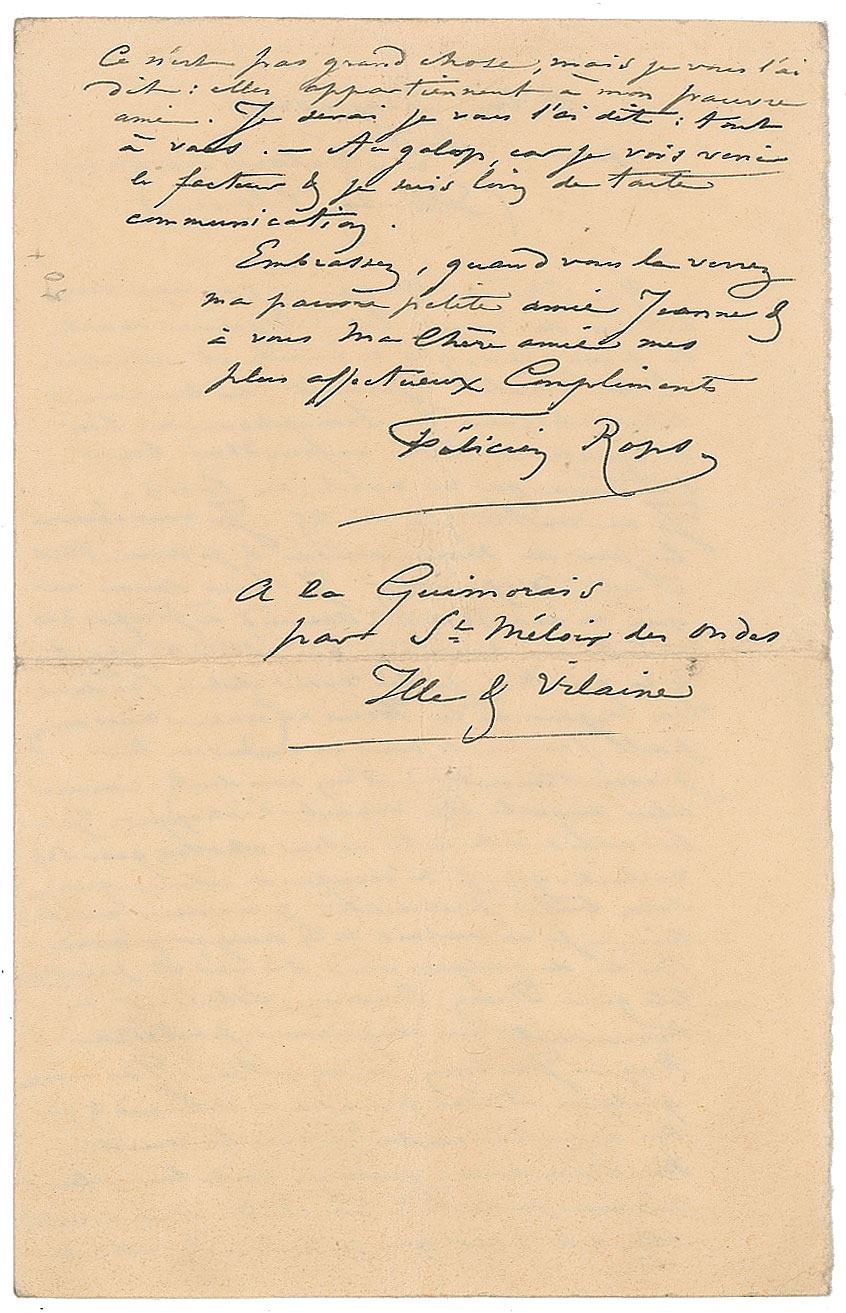 Ce n'est pas grand chose, mais je vous l'ai
dit : elles appartiennent à mon pauvre
ami. Je serai je vous l'ai dit : tout
à vous. — Au galop, car je vois venir
le facteur & je suis loin de toute
communication.
Embrassez, quand vous la verrez
ma pauvre petite amie Jeanne &
à vous Ma Chère amie mes
plus affectueux Compliments
Félicien Rops
A la Guimorais
par St Méloir des Ondes
Ille & Vilaine